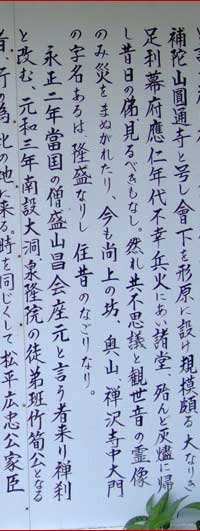 補陀山圓通寺と号し會下を形原に設け規模頗る大なりき
足利幕府應仁年代不幸兵火にあい諸堂、殆んど灰燼に帰
し昔日の俤見るべきもなし。然れ共不思議と観世音の霊像
のみ災をまぬがれたり、今も尚上の坊、奥山、禅沢寺中大門
の字名あるは、隆盛なりし往昔のなごりなり。
永正二年當国の僧盛山昌会座元と言う者来り禅利
と改む、元和三年南設大洞、泉隆院の徒弟班竹筍公となる
者、行の為此の地に来る。時を同じくして松平広忠公家臣